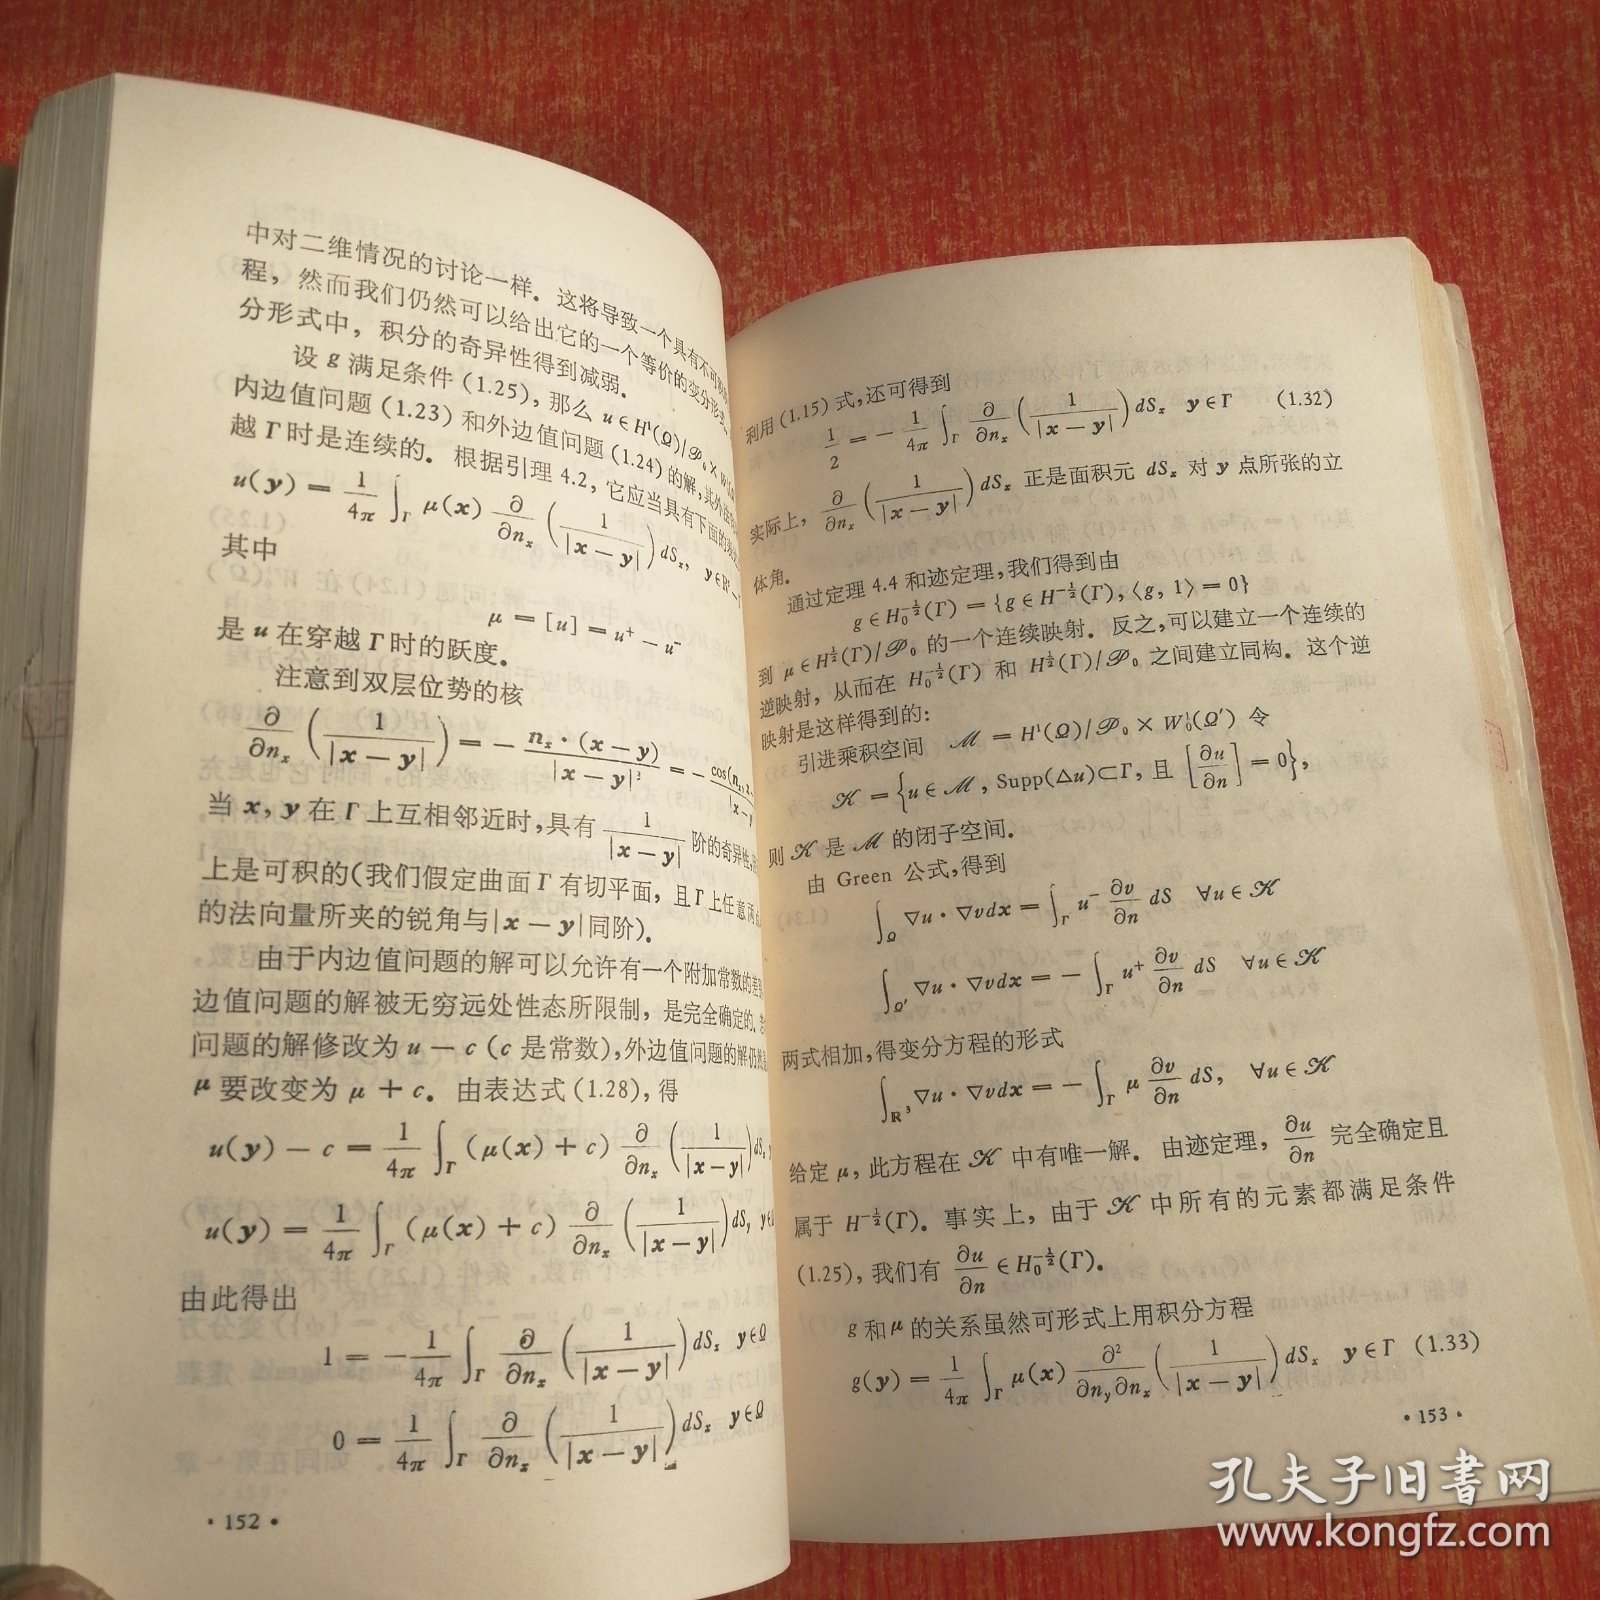 中对二维情况的讨论一样．这将导致一个具有不可
程，然而我们仍然可以给出它的一个等价的变分形式．
分形式中，积分的奇异性得到减弱．
设 g 满足条件 (1.25)，那么 u ∈ H¹(Ω)/𝒫₀ × W
内边值问题 (1.23) 和外边值问题 (1.24) 的解，其外法
越 Γ 时是连续的．根据引理 4.2，它应当具有下面的表
u(y) = 1/4π ∫_Γ μ(x) ∂/∂n_x (1/|x − y|) dS_x, y ∈
其中
μ = [u] = u⁺ − u⁻
是 u 在穿越 Γ 时的跃度．
注意到双层位势的核
∂/∂n_x (1/|x − y|) = − n_x · (x − y)/|x − y|³ = − cos(n_x, x
当 x, y 在 Γ 上互相邻近时，具有 1/|x − y| 阶的奇异性
上是可积的（我们假定曲面 Γ 有切平面，且 Γ 上任意两
的法向量所夹的锐角与 |x − y| 同阶）．
由于内边值问题的解可以允许有一个附加常数的差
边值问题的解被无穷远处性态所限制，是完全确定的．
问题的解修改为 u − c（c 是常数），外边值问题的解仍然
μ 要改变为 μ + c．由表达式 (1.28)，得
u(y) − c = 1/4π ∫_Γ (μ(x) + c) ∂/∂n_x (1/|x − y|) dS_x
u(y) = 1/4π ∫_Γ (μ(x) + c) ∂/∂n_x (1/|x − y|) dS, y ∈
由此得出
1 = − 1/4π ∫_Γ ∂/∂n_x (1/|x − y|) dS_x y ∈ Ω
0 = 1/4π ∫_Γ ∂/∂n_x (1/|x − y|) dS_x y ∈ Ω
· 152 ·
利用 (1.15) 式，还可得到
1/2 = − 1/4π ∫_Γ ∂/∂n_x (1/|x − y|) dS_x y ∈ Γ (1.32)
实际上，∂/∂n_x (1/|x − y|) dS_x 正是面积元 dS_x 对 y 点所张的立
体角．
通过定理 4.4 和迹定理，我们得到由
g ∈ H₀^{-1/2}(Γ) = {g ∈ H^{-1/2}(Γ), ⟨g, 1⟩ = 0}
到 μ ∈ H^{1/2}(Γ)/𝒫₀ 的一个连续映射．反之，可以建立一个连续的
逆映射，从而在 H₀^{-1/2}(Γ) 和 H^{1/2}(Γ)/𝒫₀ 之间建立同构．这个逆
映射是这样得到的：
引进乘积空间 ℳ = H¹(Ω)/𝒫₀ × W₀¹(Ω′) 令
𝒦 = {u ∈ ℳ, Supp(Δu) ⊂ Γ, 且 [∂u/∂n] = 0},
则 𝒦 是 ℳ 的闭子空间．
由 Green 公式，得到
∫_Ω ∇u · ∇v dx = ∫_Γ u⁻ ∂v/∂n dS ∀u ∈ 𝒦
∫_Ω′ ∇u · ∇v dx = − ∫_Γ u⁺ ∂v/∂n dS ∀u ∈ 𝒦
两式相加，得变分方程的形式
∫_ℝ³ ∇u · ∇v dx = − ∫_Γ μ ∂v/∂n dS, ∀u ∈ 𝒦
给定 μ，此方程在 𝒦 中有唯一解．由迹定理，∂u/∂n 完全确定且
属于 H^{-1/2}(Γ)．事实上，由于 𝒦 中所有的元素都满足条件
(1.25)，我们有 ∂u/∂n ∈ H₀^{-1/2}(Γ)．
g 和 μ 的关系虽然可形式上用积分方程
g(y) = 1/4π ∫_Γ μ(x) ∂²/∂n_y∂n_x (1/|x − y|) dS_x y ∈ Γ (1.33)
· 153 ·
孔夫子旧书网
www.kongfz.com